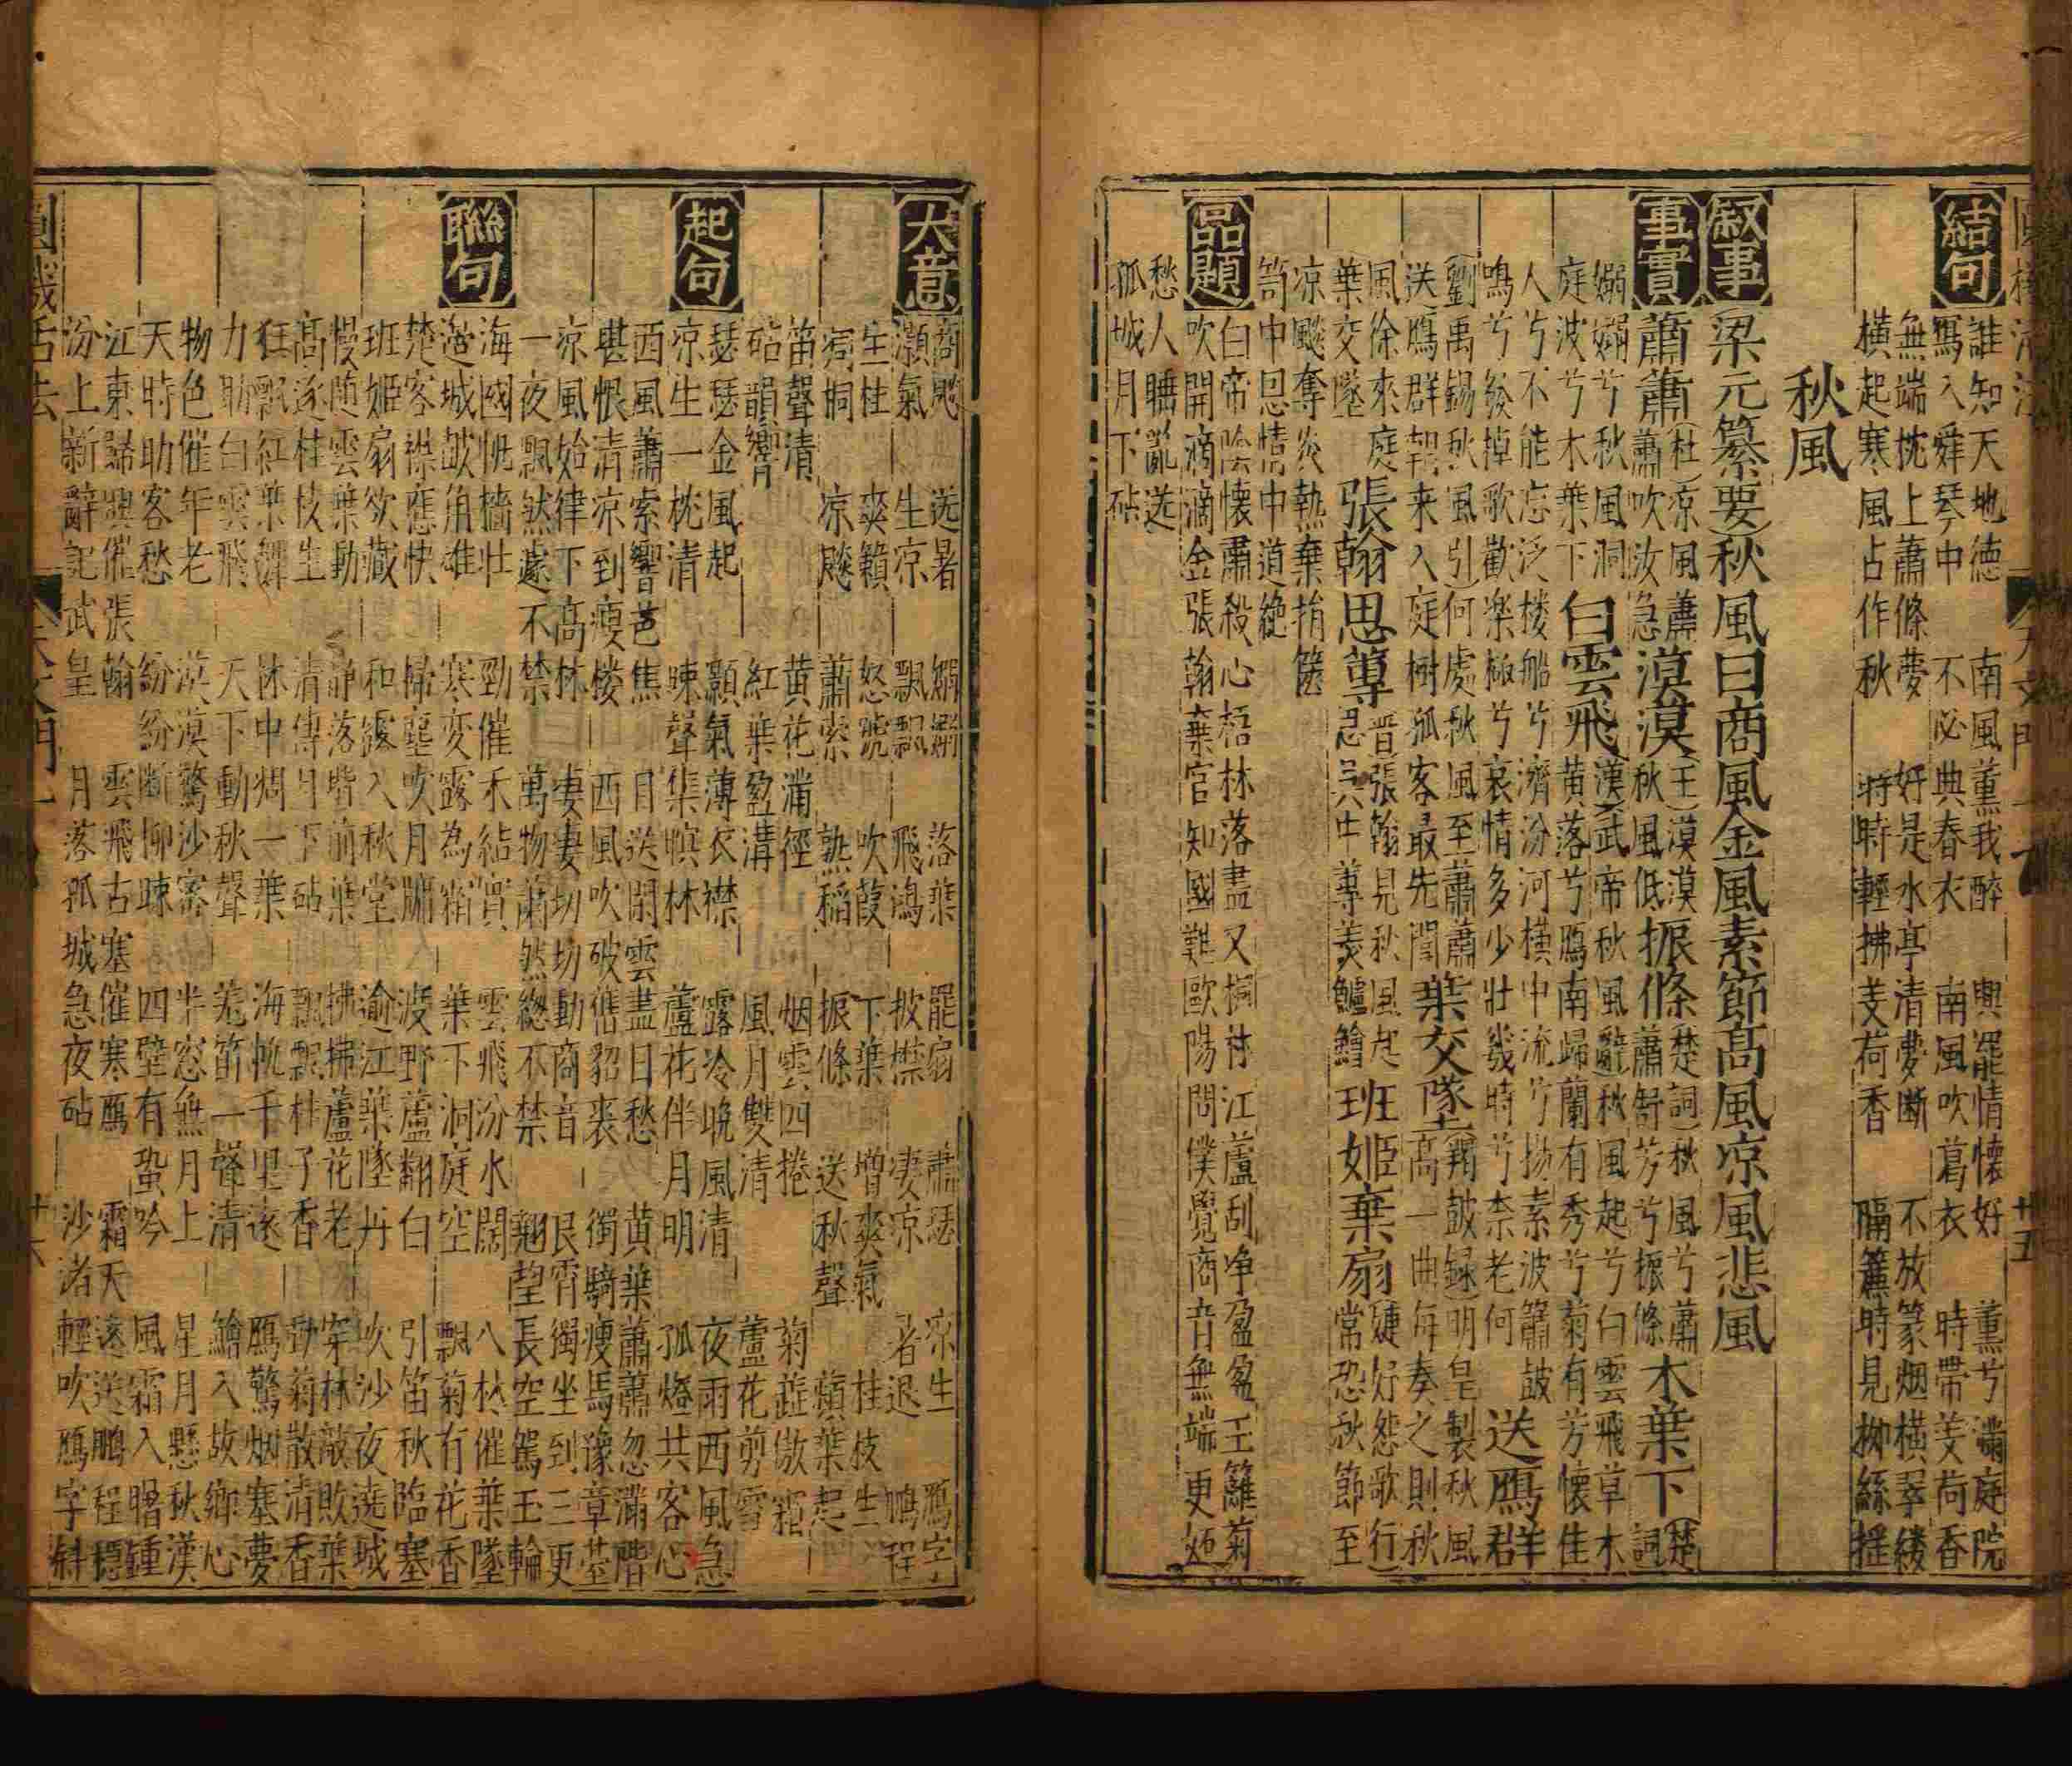 結句
誰知天地德 南風薰我醉 興罷情懷好 薰兮滿庭院
爲入舜琴中 不必典春衣 南風吹葛衣 時帶芰荷香
無端枕上蕭條夢 好是水亭清夢斷 不放篆烟橫翠縷
橫起寒風占作秋 時時輕拂芰荷香 隔簾時見柳絲揺
秋風
叙事
梁元纂要)秋風曰商風金風素節高風凉風悲風
事實
蕭蕭(杜)凉風蕭蕭吹汝急 漠漠(王)漠漠秋風低 振條(楚詞)秋風兮蕭蕭舒芳兮振條 木葉下(楚詞
嫋嫋兮秋風洞庭波兮木葉下 白雲飛(漢)武帝秋風辭秋風起兮白雲飛草木黄落兮鴈南歸蘭有秀兮菊有芳懷佳
人兮不能忘泛楼船兮濟汾河橫中流兮揚素波簫鼓鳴兮發棹歌歡楽極兮哀情多少壮幾時兮奈老何 送鴈群
(劉)禹錫秋風引)何處秋風至蕭蕭送鴈群朝来入庭樹孤客最先聞 葉交墜(羯鼓録)明皇製秋風高一曲每奏之則秋
風徐來庭葉交墜 張翰思蓴 晋張翰見秋風起思吴中蓴羡鱸鱠 班姬棄扇 婕好怨歌行)常恐秋節至
凉飈奪炎熱棄捐篋笥中恩情中道絶
品題
白帝陰懷肅殺心梧林落盡又桐林江蘆刮净盈盈玉籬菊
吹開滴滴金張翰棄官知國難歐陽問僕覺商音無端更煩
愁人睡亂送
孤城月下砧
大意
商颷 送暑 嫋嫋 落葉 罷扇 肅瑟 凉生 鴈字
灝氣 生凉 飄飄 飛鴻 披襟 凄凉 暑退 鵬程
生桂 爽籟 怒號 吹葭 下葉 增爽氣 桂枝生
凋桐 凉颷 蕭索 熟稲 振條 送秋聲 蘋葉起
笛聲清 黄花滿徑 烟雲四捲 菊蕋傲霜
砧韻響 紅葉盈溝 風月雙清 蘆花剪雪
起句
瑟瑟金風起 顥氣薄衣襟 露冷晩風清 夜雨西風急
凉生一枕清 踈聲集暝林 蘆花伴月明 孤燈共客心
西風蕭索響芭焦 目送閑雲盡日愁 黄葉蕭蕭忽滿階
堪恨清凉到瘦楼 西風吹破舊貂裘 獨騎瘦馬豫章臺
凉風始律下高林 凄凄切切動商音 良宵獨坐到三更
一夜飄然遽不禁 萬物蕭然總不禁 翹望長空駕玉輪
聯句
海國帆檣壮 勁催禾結實 雲飛汾水闊 八林催葉墜
邉城皷角雄 寒変露為霜 葉下洞庭空 飄菊有花香
楚客襟應快 掃塵吹月牖 波野蘆翻白 引笛秋臨塞
班姬扇欲藏 和露入秋堂 渝江葉墜丹 吹沙夜遶城
慢随雲葉動 静落堦前葉 拂拂蘆花老 穿林敲敗葉
高逐桂枝生 清傳月下砧 飄飄桂子香 勁菊散清香
狂飄紅葉舞 林中凋一葉 海帆千里遠 鴈驚烟塞夢
力助白雲飛 天下動秋聲 羌笛一聲清 鱠入故鄉心
物色催年老 漠漠驚沙密 半窓無月上 星月懸秋漢
天時助客愁 紛紛斷柳踈 四壁有蛩吟 風霜入曙鍾
江東歸興催張翰 雲飛古塞催寒鴈 霜天遠送鵬程穩
汾上新辭記武皇 月落孤城急夜砧 沙渚輕吹鴈字斜